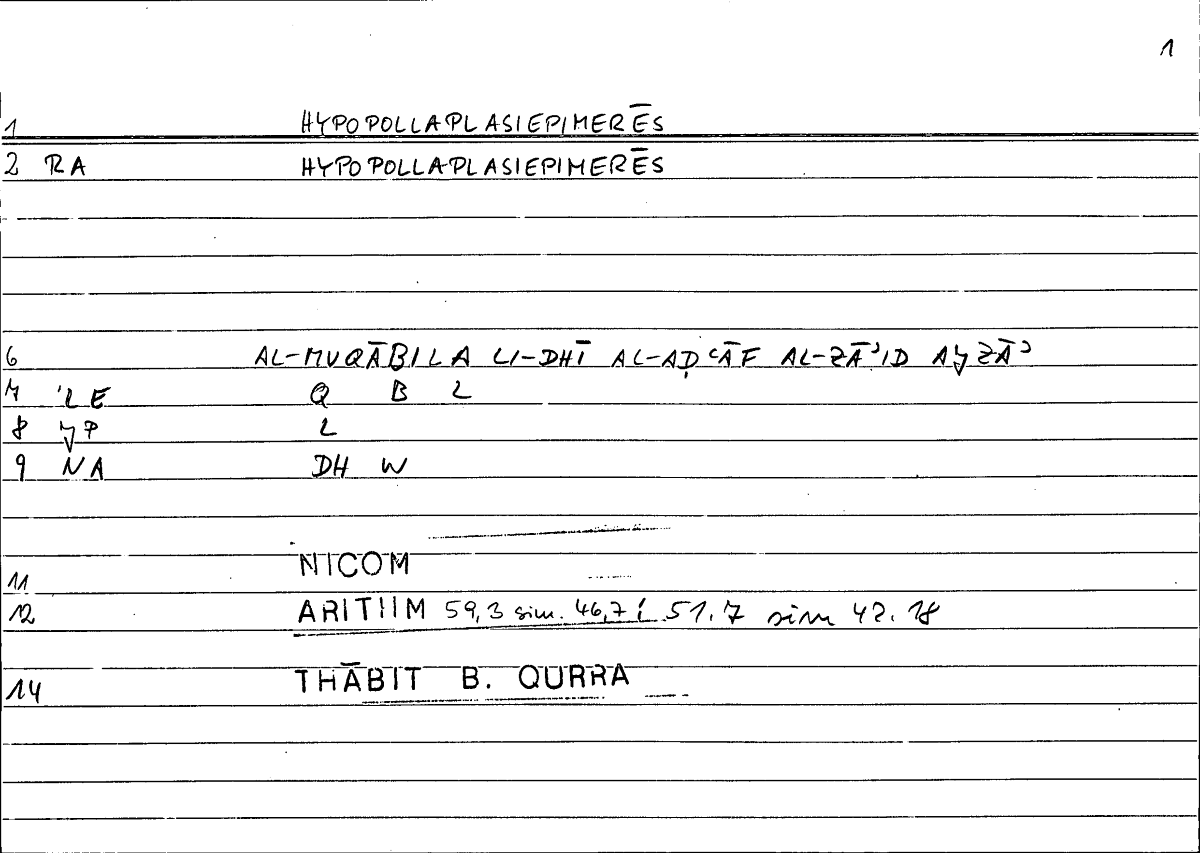 1
1 HYPOPOLLAPLASIEPIMERĒS
2 RA HYPOPOLLAPLASIEPIMERĒS
6 AL-MUQĀBILA LI-DHĪ AL-AḌʿĀF AL-ZĀʾID AJZĀʾ
7 'LE Q B L
8 JP L
9 NA DH W
11 NICOM
12 ARITHM 59,3 sim. 46,7; 51.7 sim 42.18
14 THĀBIT B. QURRA